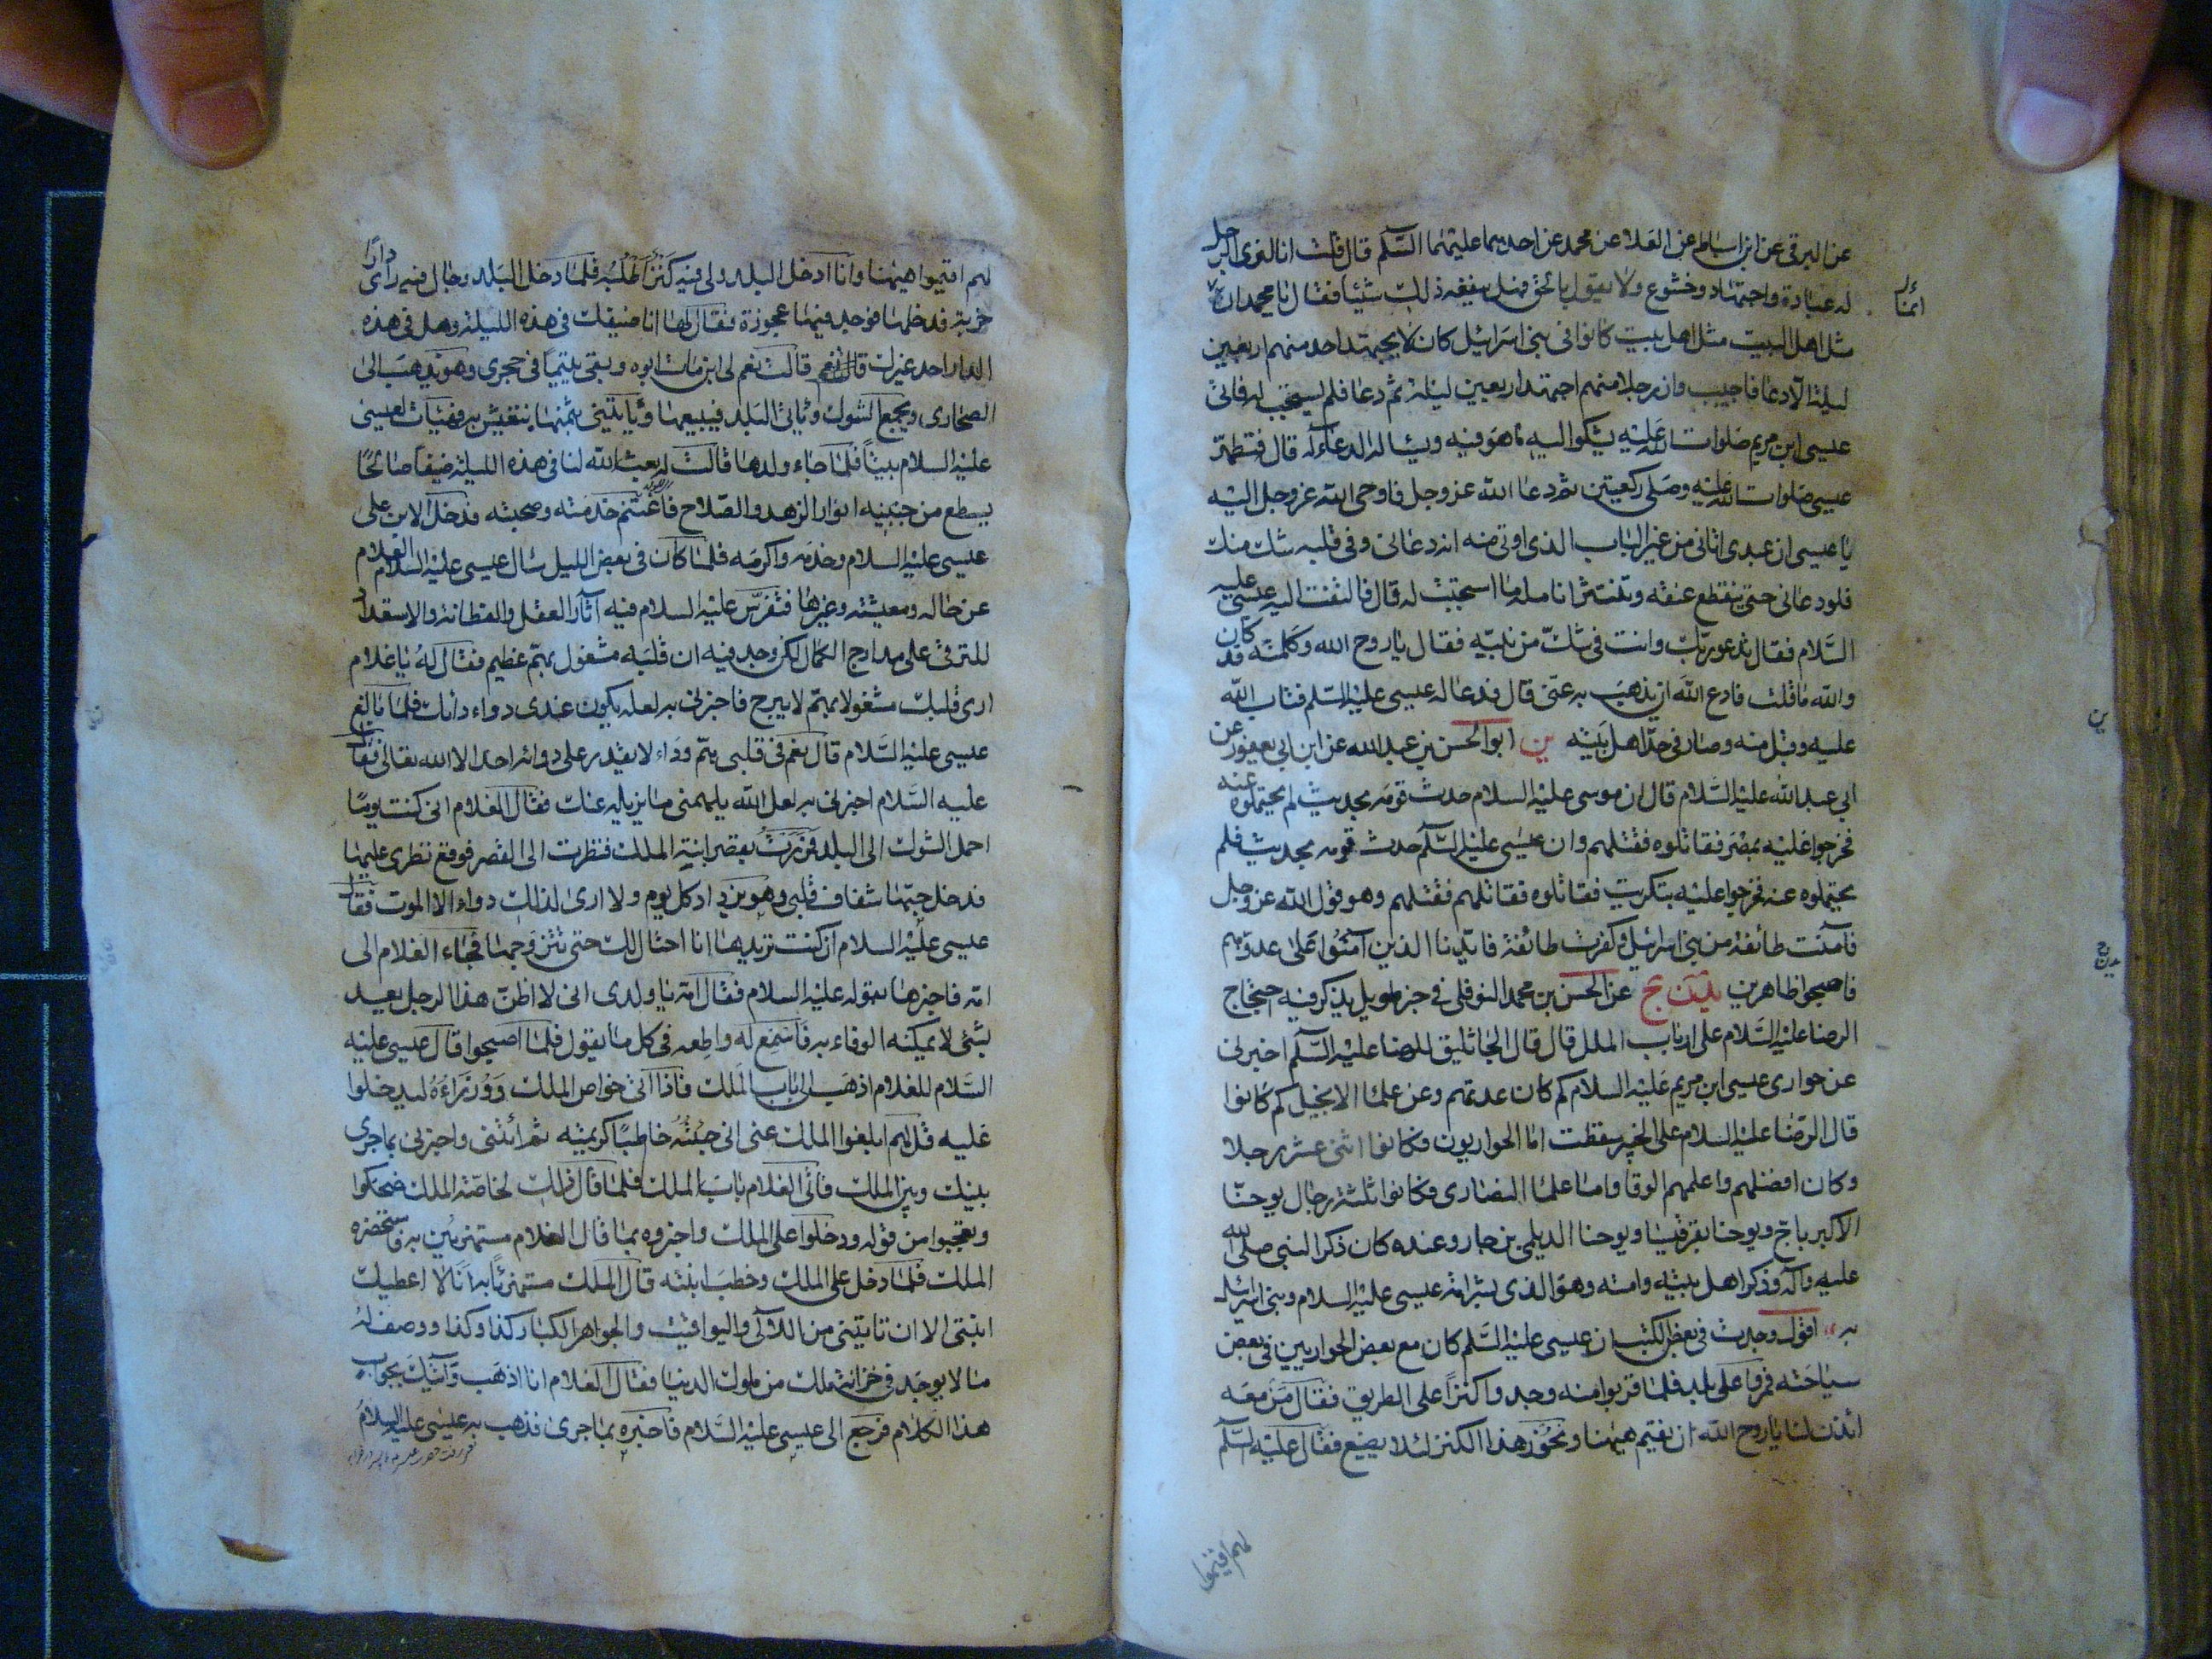 عن البرقى عن ابن اسباط عن العلا عن محمد عن احدهما عليهما السّلم قال قلت انا لنرى الرجل
له عبادة واجتهاد وخشوع ولا يقول بالحق فهل ينفعه ذلك شيئا فقال يا محمد ان
انما
مثل اهل البيت مثل اهل بيت كانوا فى بنى اسرائيل كان لا يجتهد احد منهم اربعين
ليلة الا دعا فاجيب وان رجلا منهم اجتهد اربعين ليلة ثم دعا فلم يستجب له فاتى
عيسى ابن مريم صلوات الله عليه يشكو اليه ما هو فيه ويسأله الدعاء له قال فتطهر
عيسى صلوات الله عليه وصلى ركعتين ثم دعا الله عز وجل فاوحى الله عز وجل اليه
يا عيسى ان عبدى اتانى من غير الباب الذى اوتى منه انه دعانى وفى قلبه شك منك
فلو دعانى حتى ينقطع عنقه وتنتثر انامله ما استجبت له قال فالتفت اليه عيسى عليه
السّلام فقال تدعو ربك وانت فى شكّ من نبيّه فقال يا روح الله وكلمته قد كان
والله ما قلت فادع الله ان يذهب به عنّى قال فدعا له عيسى عليه السّلم فتاب الله
عليه وقبل منه وصار فى حدّ اهل بيته ين ابو الحسن بن عبد الله عن ابن ابى يعفور عن
ابي عبد الله عليه السّلام قال ان موسى عليه السلام حدث قومه بحديث لم يحتملوه عنه
فخرجوا عليه بمصر فقاتلوه فقتلهم وان عيسى عليه السّلم حدث قومه بحديث فلم
يحتملوه عنه فخرجوا عليه بتكريت فقاتلوه فقاتلهم فقتلهم وهو قول الله عز وجل
فآمنت طائفة من بنى اسرائيل وكفرت طائفة فايّدنا الذين آمنوا على عدوّهم
فاصبحوا ظاهرين يد ن ج عن الحسن بن محمد النوفلى فى خبر طويل يذكر فيه احتجاج
الرضا عليه السّلام على ارباب الملل قال قال الجاثليق للرضا عليه السّلم اخبرنى
عن حوارى عيسى ابن مريم عليه السلام كم كان عدتهم وعن علما الانجيل كم كانوا
قال الرّضا عليه السلام على الخبير سقطت اما الحواريون فكانوا اثنى عشر رجلا
وكان افضلهم واعلمهم الوقا واما علما النصارى فكانوا ثلثة رجال يوحنّا
الاكبر باج ويوحنا بقرقيسا ويوحنا الديلمى بزجار وعنده كان ذكر النبى صلى الله
عليه وآله وذكر اهل بيته وامته وهو الذى بشر امة عيسى عليه السلام وبنى اسرائيل
به اقول وجدت فى بعض الكتب ان عيسى عليه السّلم كان مع بعض الحواريين فى بعض
سياحته فمروا على بلد فلما قربوا منه وجدوا كنزاً على الطريق فقال من معه
ائذن لنا يا روح الله ان نقيم هيهنا ونحوز هذا الكنز لئلا يضيع فقال عليه السّلم
لهم اقيموا
لهم اقيموا هيهنا وانا ادخل البلد ولى فيه كنز اطلبه فلما دخل البلد وجال فيه رأى دارًا
خربة فدخلها فوجد فيها عجوزة فقال لها انا ضيفك فى هذه الليلة وهل فى هذه
الدار احد غيرك قالت نعم لى ابن مات ابوه وبقى يتيماً فى حجرى وهو يذهب الى
الصحارى ويجمع الشوك ويأتى البلد فيبيعها ويأتينى بثمنها نتعيش به فهيأت لعيسى
عليه السلام بيتاً فلما جاء ولدها قالت له بعث الله لنا فى هذه الليلة ضيفا صالحًا
يسطع من جبينه انوار الزهد والصّلاح فاغتنم خدمته وصحبته فدخل الابن على
عيسى عليه السلام وخدمه واكرمه فلما كان فى بعض الليل سأل عيسى عليه السلام الغلام
عن حاله ومعيشته وغيرها فتفرّس عليه السلام فيه آثار العقل والفطانة والاستعداد
للترقى على مدارج الكمال لكن وجد فيه ان قلبه مشغول بهمّ عظيم فقال له يا غلام
ارى قلبك مشغولا بهمّ لا يبرح فاخبرنى به لعله يكون عندى دواء دائك فلما بالغ
عيسى عليه السّلام قال نعم فى قلبى همّ وداء لا يقدر على دوائه احد الا الله تعالى فقال
عليه السّلام اخبرنى به لعل الله يلهمنى ما يزيله عنك فقال الغلام انى كنت يومًا
احمل الشوك الى البلد فمررت بقصر ابنة الملك فنظرت الى القصر فوقع نظرى عليها
فدخل حبّها شغاف قلبى وهو يزداد كل يوم ولا ارى لذلك دواء الا الموت فقال
عيسى عليه السلام ان كنت تريدها انا احتال لك حتى تتزوجها فجاء الغلام الى
امه فاخبرها بقوله عليه السلام فقال امه يا ولدى انى لا اظنّ هذا الرجل يعد
بشئ لا يمكنه الوفاء به فاسمع له واطعه فى كل ما يقول فلما اصبحوا قال عيسى عليه
السّلام للغلام اذهب الى باب الملك فاذا اتى خواص الملك ووزراءه ليدخلوا
عليه قل لهم ابلغوا الملك عنى انى جئته خاطبًا كريمته ثم ائتنى واخبرنى بما جرى
بينك وبين الملك فأتى الغلام باب الملك فلما قال ذلك لخاصّة الملك ضحكوا
وتعجبوا من قوله ودخلوا على الملك واخبروه بما قال الغلام مستهزئين به فاستحضره
الملك فلما دخل على الملك وخطب ابنته قال الملك مستهزئاً به انا لا اعطيك
ابنتى الا ان تأتينى من اللآلى واليواقيت والجواهر الكبار كذا وكذا ووصف له
ما لا يوجد فى خزانة ملك من ملوك الدنيا فقال الغلام انا اذهب وآتيك بجواب
هذا الكلام فرجع الى عيسى عليه السّلام فاخبره بما جرى فذهب به عيسى عليه السلام